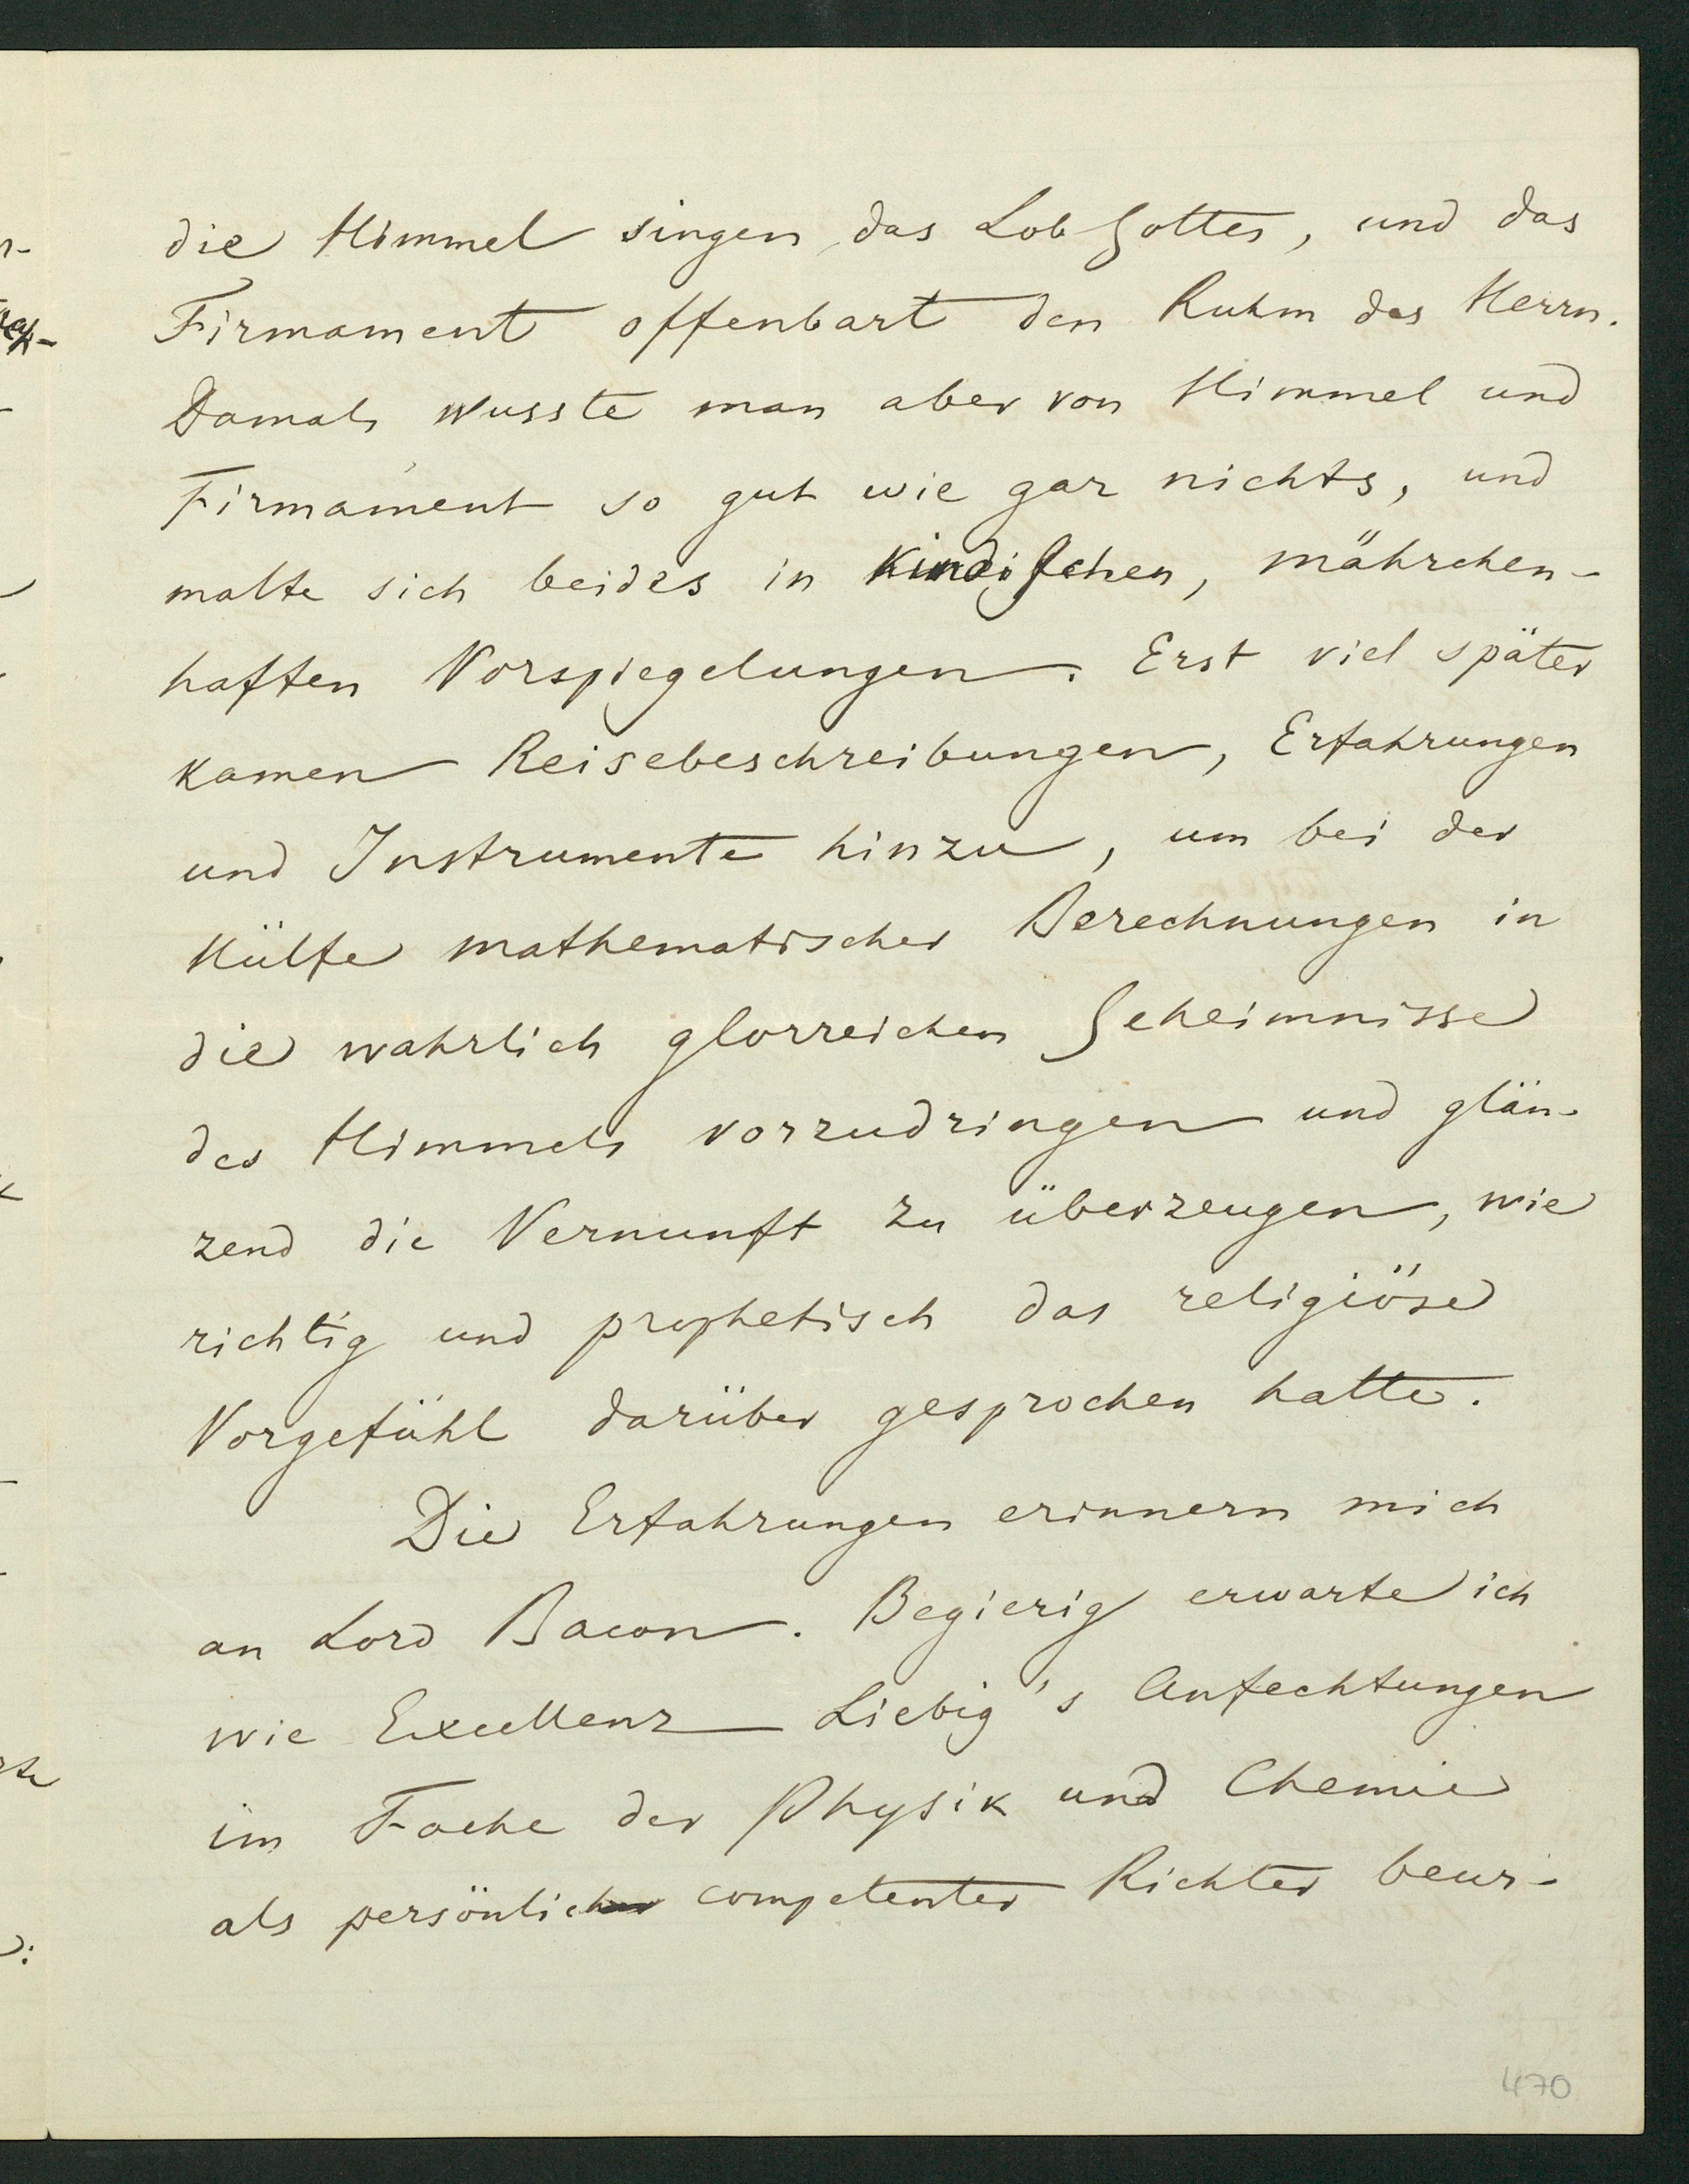 die Himmel singen das Lob Gottes, und das
Firmament offenbart den Ruhm des Herrn.
Damals wusste man aber von Himmel und
Firmament so gut wie gar nichts, und
malte sich beides in kindischen, mährchen-
haften Vorspiegelungen. Erst viel später
kamen Reisebeschreibungen, Erfahrungen
und Instrumente hinzu, um bei der
Hülfe mathematischer Berechnungen in
die wahrlich glorreichen Geheimnisse
des Himmels vorzudringen und glän-
zend die Vernunft zu überzeugen, wie
richtig und prophetisch das religiöse
Vorgefühl darüber gesprochen hatte.
Die Erfahrungen erinnern mich
an Lord Bacon. Begierig erwarte ich
wie Excellenz Liebig's Anfechtungen
im Fache der Physik und Chemie
als persönlich competenter Richter beur-
470